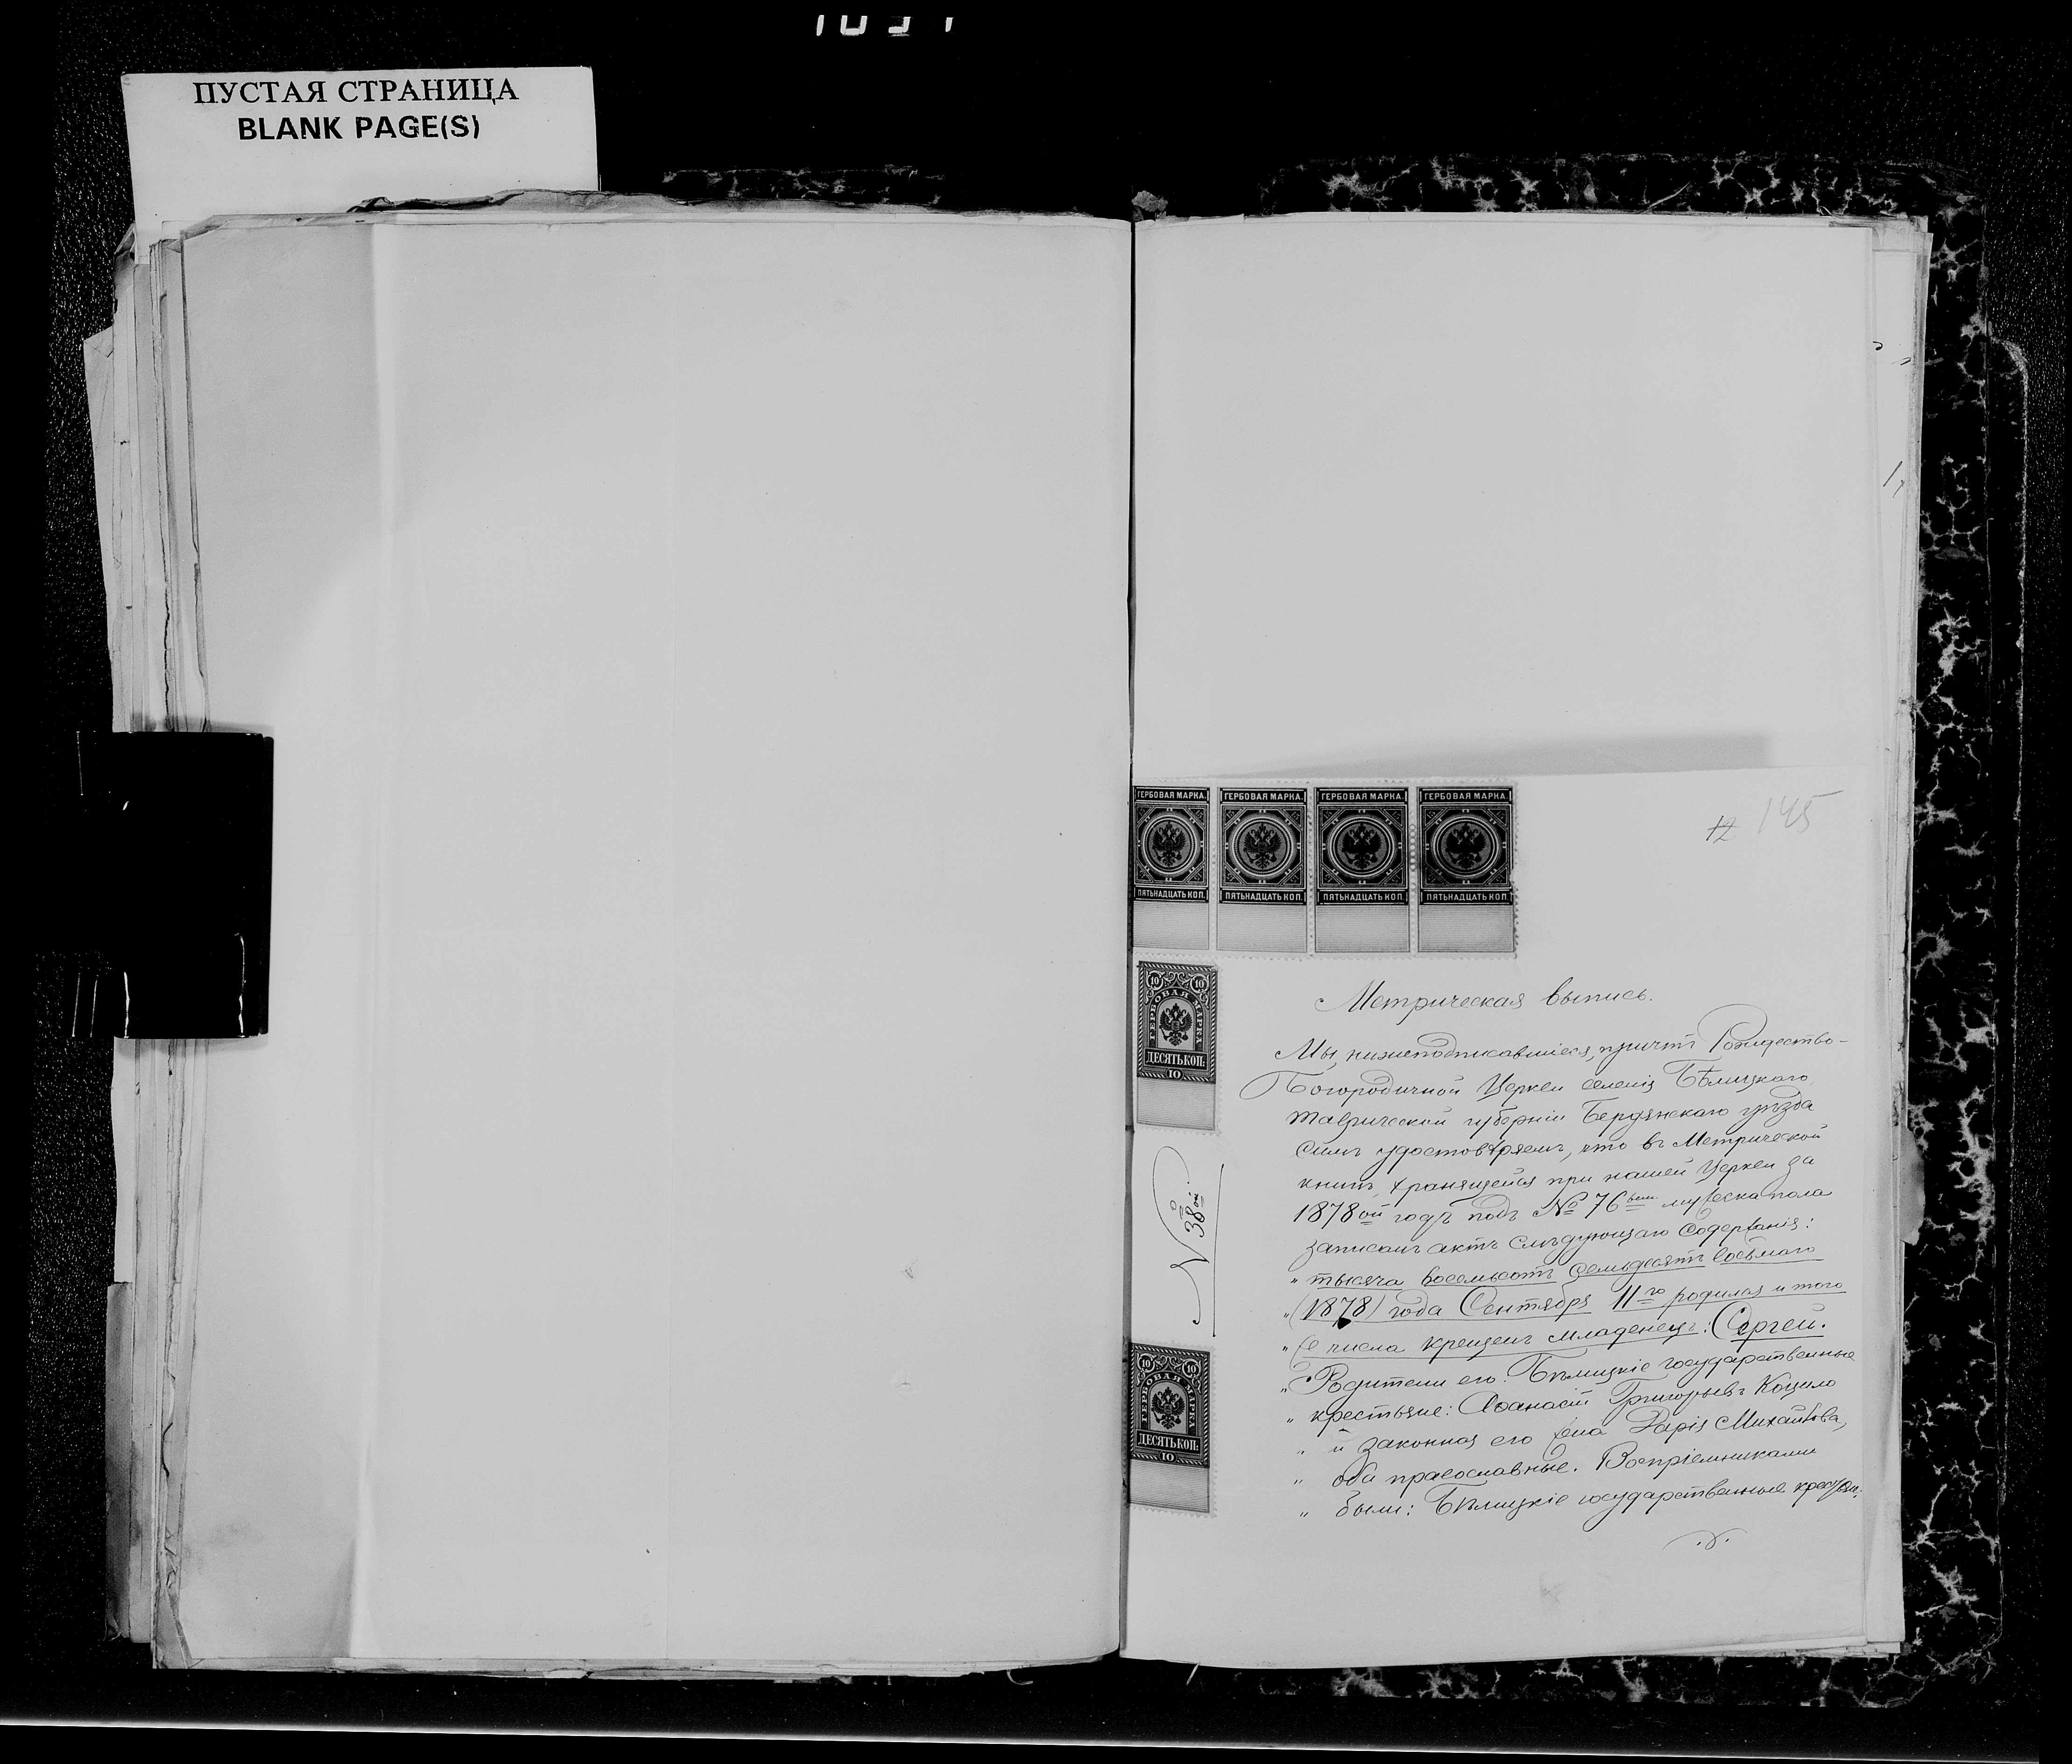 ПУСТАЯ СТРАНИЦА
BLANK PAGE(S)
ГЕРБОВАЯ МАРКА. ГЕРБОВАЯ МАРКА. ГЕРБОВАЯ МАРКА. ГЕРБОВАЯ МАРКА
ПЯТЬНАДЦАТЬ КОП. ПЯТЬНАДЦАТЬ КОП. ПЯТЬНАДЦАТЬ КОП. ПЯТЬНАДЦАТЬ КОП
12 145
10 10
ГЕРБОВАЯ МАРКА
ДЕСЯТЬ КОП.
10
№ 38ой
10 10
ГЕРБОВАЯ МАРКА
ДЕСЯТЬ КОП.
10
Метрическая выпись.
Мы, нижеподписавшіеся, причтъ Рождество-
Богородичной Церкви селенія Бѣлицкаго
Таврической губерніи Бердянскаго уѣзда
симъ удостовѣряемъ, что въ Метрической
книгѣ, хранящейся при нашей Церкви за
1878ой годъ подъ № 76ым мужеска пола
записанъ актъ слѣдующаго содержанія:
„ тысяча восемьсотъ семьдесятъ восьмаго
„ (1878) года Сентября 11го родился и того
„ же числа крещенъ младенецъ: Сергей.
„ Родители его: Бѣлицкіе государственные
„ крестьяне: Афанасій Григорьевъ Коцило
„ и законная его жена Дарія Михайлова,
„ оба православные. Воспріемниками
„ были: Бѣлицкіе государственные крестьяне: